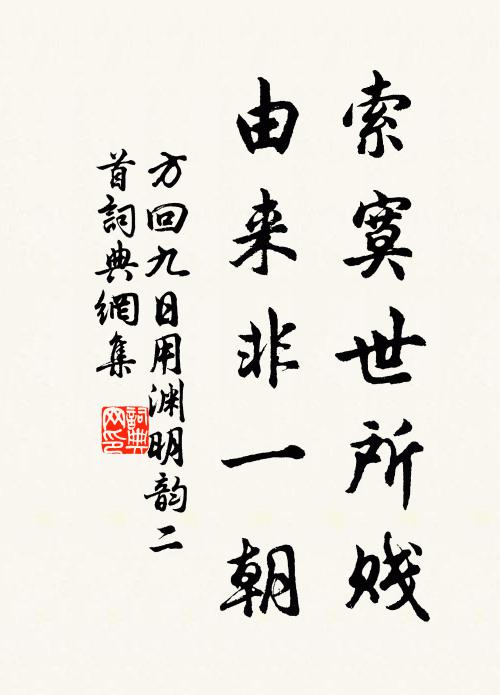 索寞世所贱
由来非一朝
方回九日用渊明韵二
首詞典網集
詞典
网印